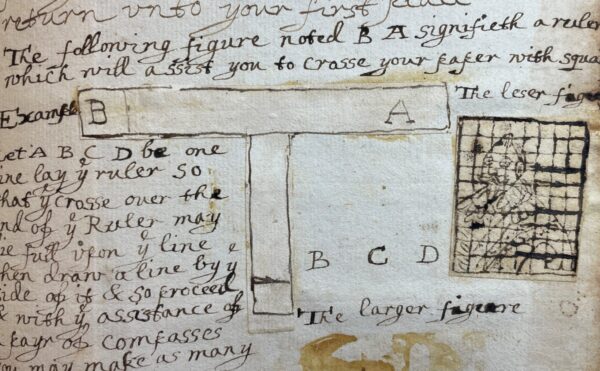 return unto your first
The following figure noted B A signifieth a ruler
which will assist you to Crosse your paper with squa
Example
B
A
The leser figure
et A B C D be one
ine lay yᵉ ruler So
hat yᵉ Crosse over the
nd of yᵉ Ruler may
e full upon yᵉ line
hen draw a line by yᵉ
side of it & so proceed
& with yᵉ assistance of
payr of Compasses
ou may make as many
B C D
The larger figure